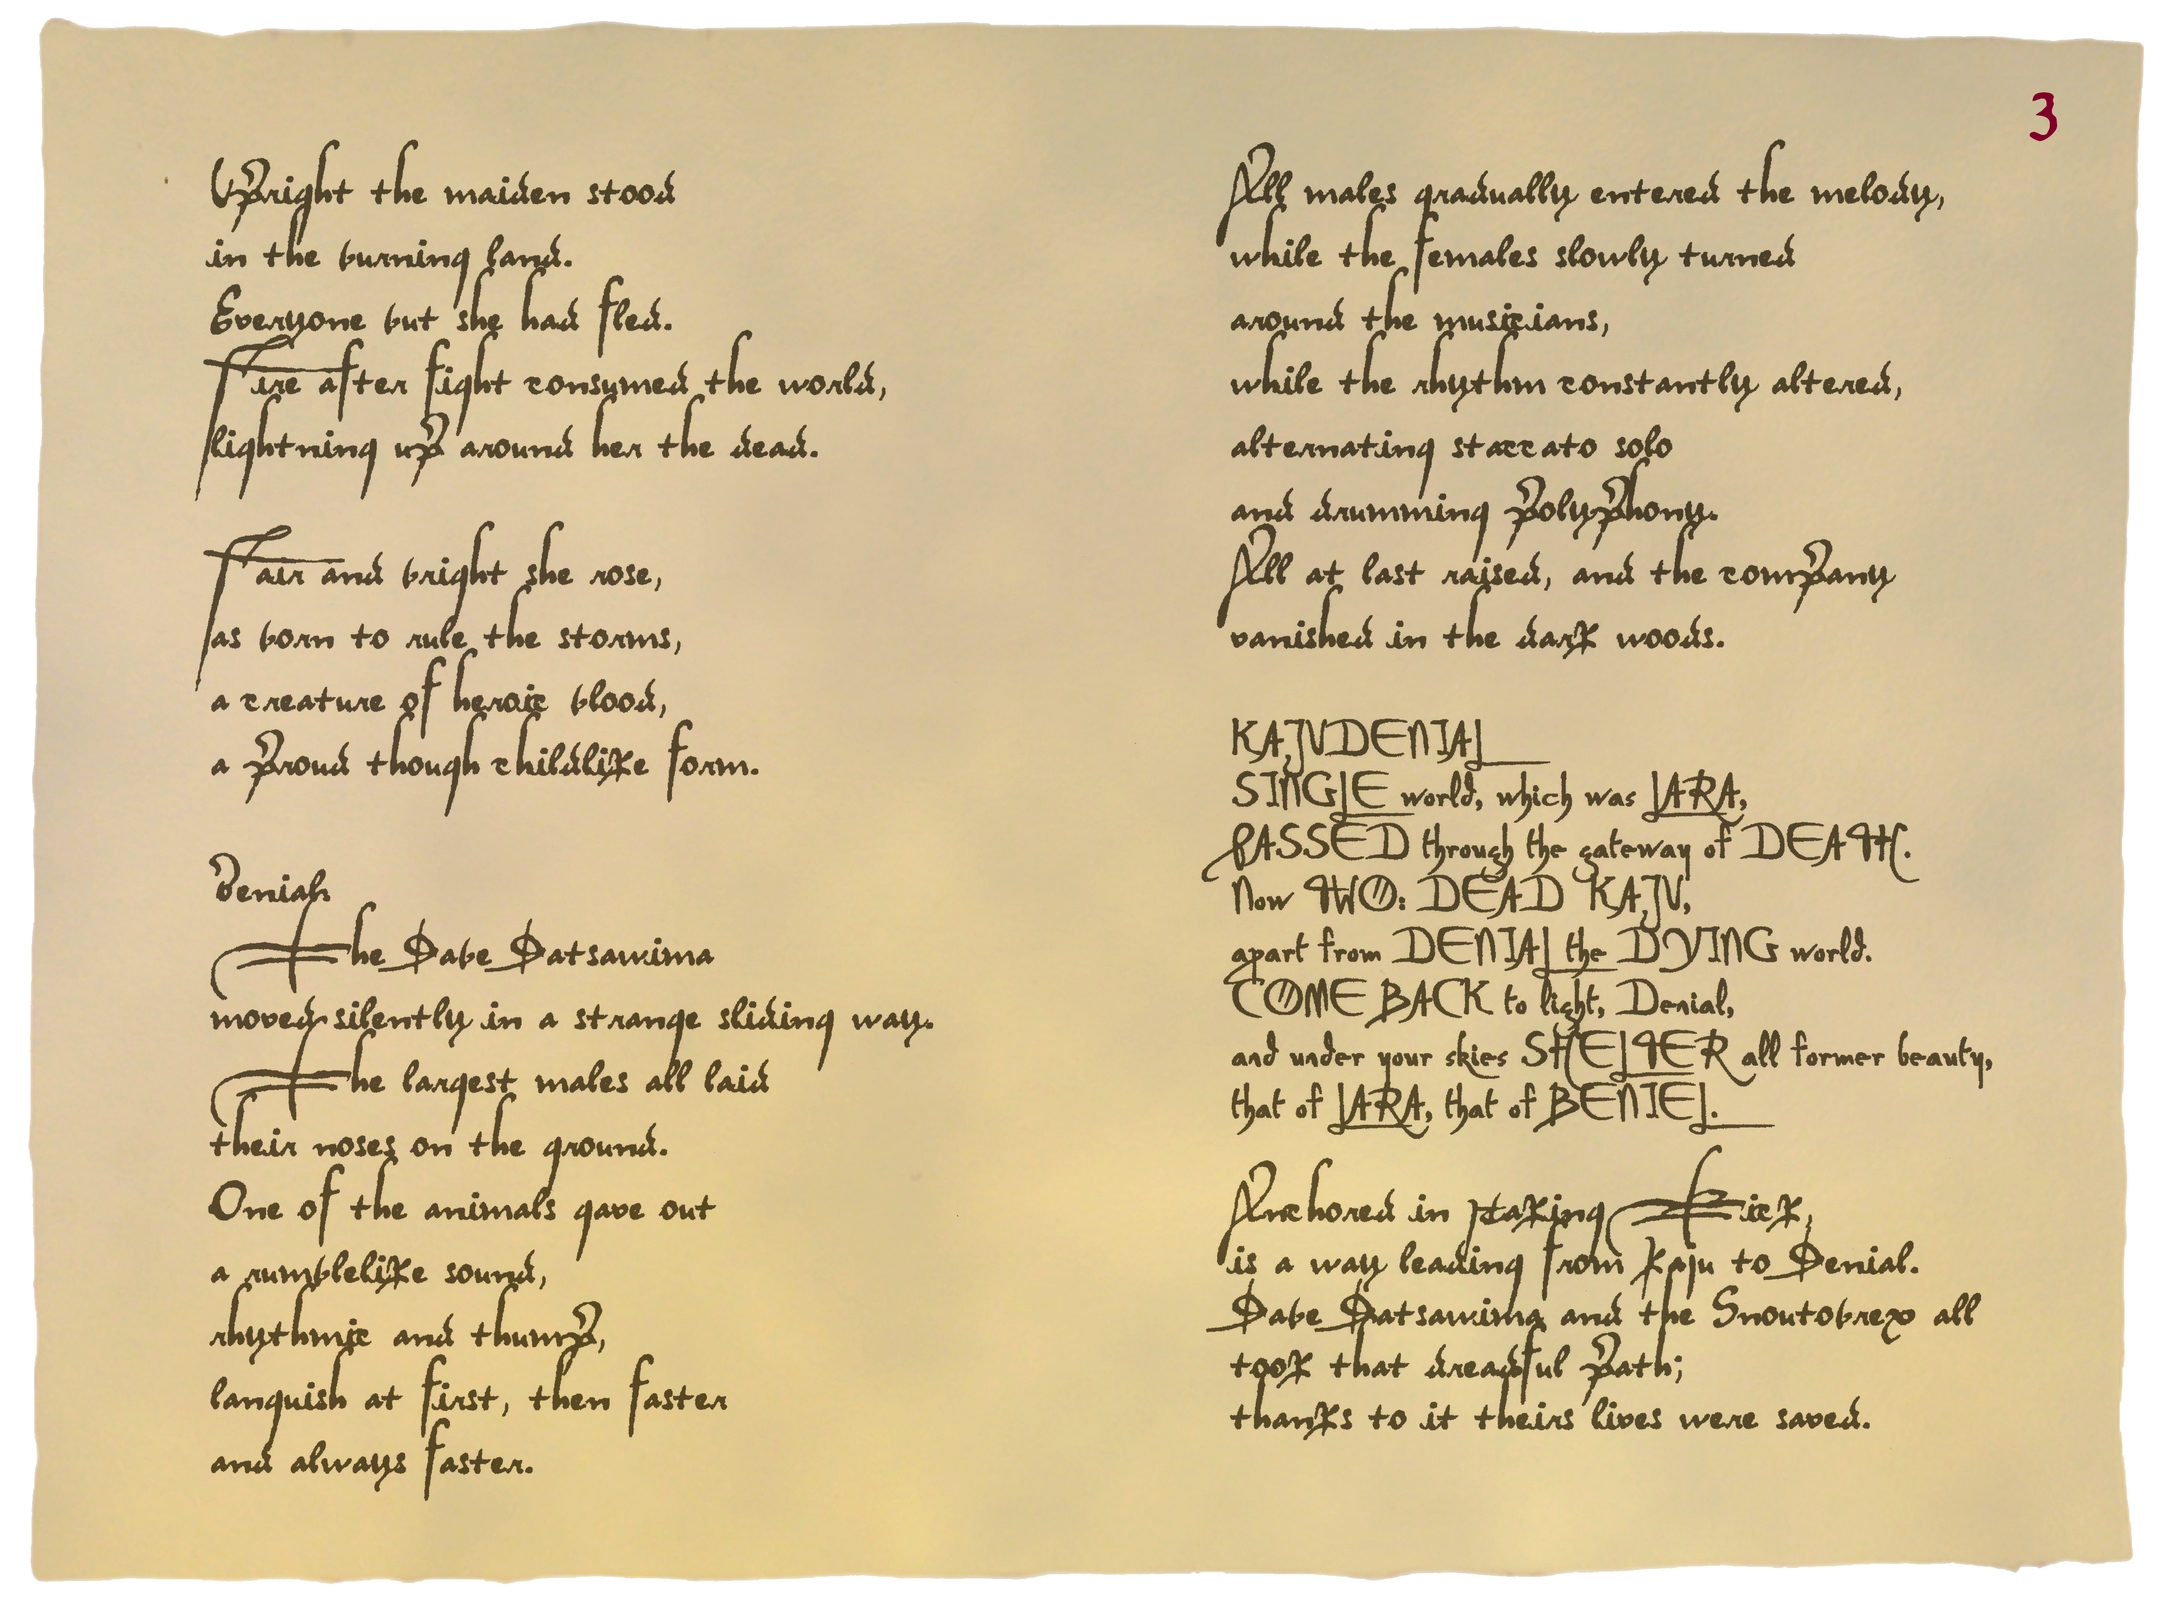 3
Upright the maiden stood
in the burning land.
Everyone but she had fled.
Fire after fight consumed the world,
lightning up around her the dead.
Fair and bright she rose,
as born to rule the storms,
a creature of heroic blood,
a proud though childlike form.
Denial.
The Dabe Datsawima
moved silently in a strange sliding way.
The largest males all laid
their noses on the ground.
One of the animals gave out
a rumblelike sound,
rhythmic and thump,
languish at first, then faster
and always faster.
All males gradually entered the melody,
while the females slowly turned
around the musicians,
while the rhythm constantly altered,
alternating staccato solo
and drumming polyphony.
All at last raised, and the company
vanished in the dark woods.
KAJUDENIAL
SINGLE world, which was LARA,
PASSED through the gateway of DEATH.
Now TWO: DEAD KAJU,
apart from DENIAL the DYING world.
COME BACK to light, Denial,
and under your skies SHELTER all former beauty,
that of LARA, that of BENIEL.
Anchored in
is a way leading from Kaju to Denial.
Dabe Datsawima and the Snoutobrex all
took that dreadful path;
thanks to it theirs lives were saved.